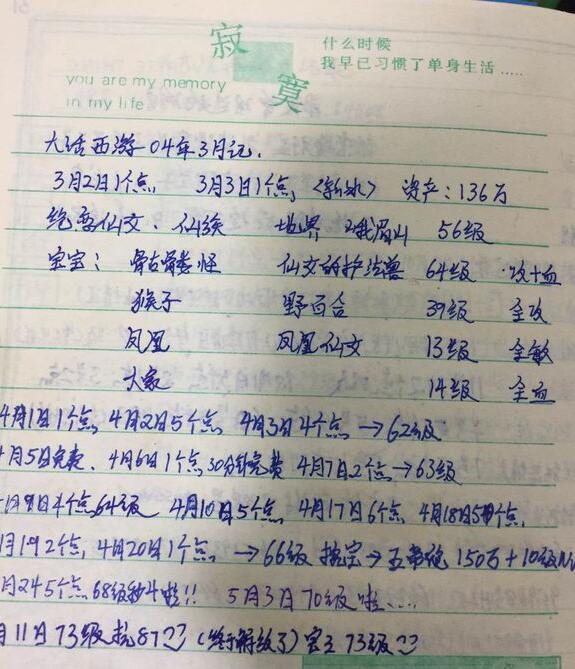 寂寞
什么时候
我早已习惯了单身生活.....
you are my memory
in my life
大话西游-04年3月记.
3月2日1个点, 3月3日1个点, 资产:136万
绝雪仙文: 仙族 地界 峨眉山 56级
宝宝: 骷髅怪 仙文的护法兽 64级 攻+血
猴子 野百合 39级 全攻
凤凰 凤凰仙文 13级 全敏
14级 全血
4月1日1个点, 4月2日5个点, 4月3日4个点→62级
月5日免费. 4月6日1个点,30分钟免费 4月7日2个点→63级
日4个点64级 4月10日5个点, 4月17日6个点, 4月18日5个点,
月19 2个点, 4月20日1个点, →66级 →五常袍 150万+10级
月24 5个点 68级 啦!! 5月3日70级啦....
月11日73级 87 (终于解放了) 73级